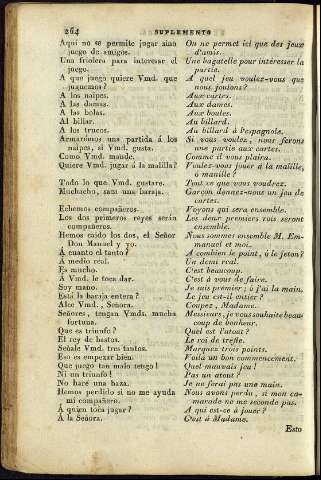 264
SUPLEMENTO
Aquí no se permite jugar sino
juego de amigos.
Una friolera para interesar el
juego.
A que juego quiere Vmd. que
juguemos?
A los naipes.
A las damas.
A las bolas.
Al billar.
A los trucos.
Armarémos una partida á los
naipes, si Vmd. gusta.
Como Vmd. mande.
Quiere Vmd. jugar á la malilla?
Todo lo que Vmd. gustare.
Muchacho, saca una baraja.
Echemos compañeros.
Los dos primeros reyes serán
compañeros.
Hemos caido los dos, el Señor
Don Manuel y yo.
Á cuanto el tanto?
A medio real.
Es mucho.
Á Vmd. le toca dar.
Soy mano.
Está la baraja entera?
Alce Vmd., Señora.
Señores, tengan Vmds. mucha
fortuna.
Que es triunfo?
El rey de bastos.
Señale Vmd. tres tantos.
Eso es empezar bien.
Que juego tan malo tengo!
Ni un triunfo!
No haré una baza.
Hemos perdido si no me ayuda
mi compañero.
Á quien toca jugar?
Á la Señora.
On ne permet ici que des jeux
d'amis.
Une bagatelle pour intéresser la
partie.
A quel jeu voulez-vous que
nous jouions?
Aux cartes.
Aux dames.
Aux boules.
Au billard.
Au billard à l'espagnole.
Si vous voulez, nous ferons
une partie aux cartes.
Comme il vous plaira.
Voulez-vous jouer à la malille,
à manille?
Tout ce que vous voudrez.
Garçon donnez-nous un jeu de
cartes.
Voyons qui sera ensemble.
Les deux premiers rois seront
ensemble.
Nous sommes ensemble M. Em-
manuel et moi.
A combien le point, à le jeton?
Un demi real.
C'est beaucoup.
C'est à vous de faire.
Je suis premier; ò j'ai la main.
Le jeu est-il entier?
Coupez, Madame.
Messieurs, je vous souhaite beau-
coup de bonheur.
Quel est l'atout?
Le roi de trefle.
Marquez trois points.
Voilà un bon commencement.
Quel mauvais jeu!
Pas un atout!
Je ne ferai pas une main.
Nous avons perdu, si mon ca-
marade ne me seconde pas.
A qui est-ce à jouer?
C'est à Madame.
Esto